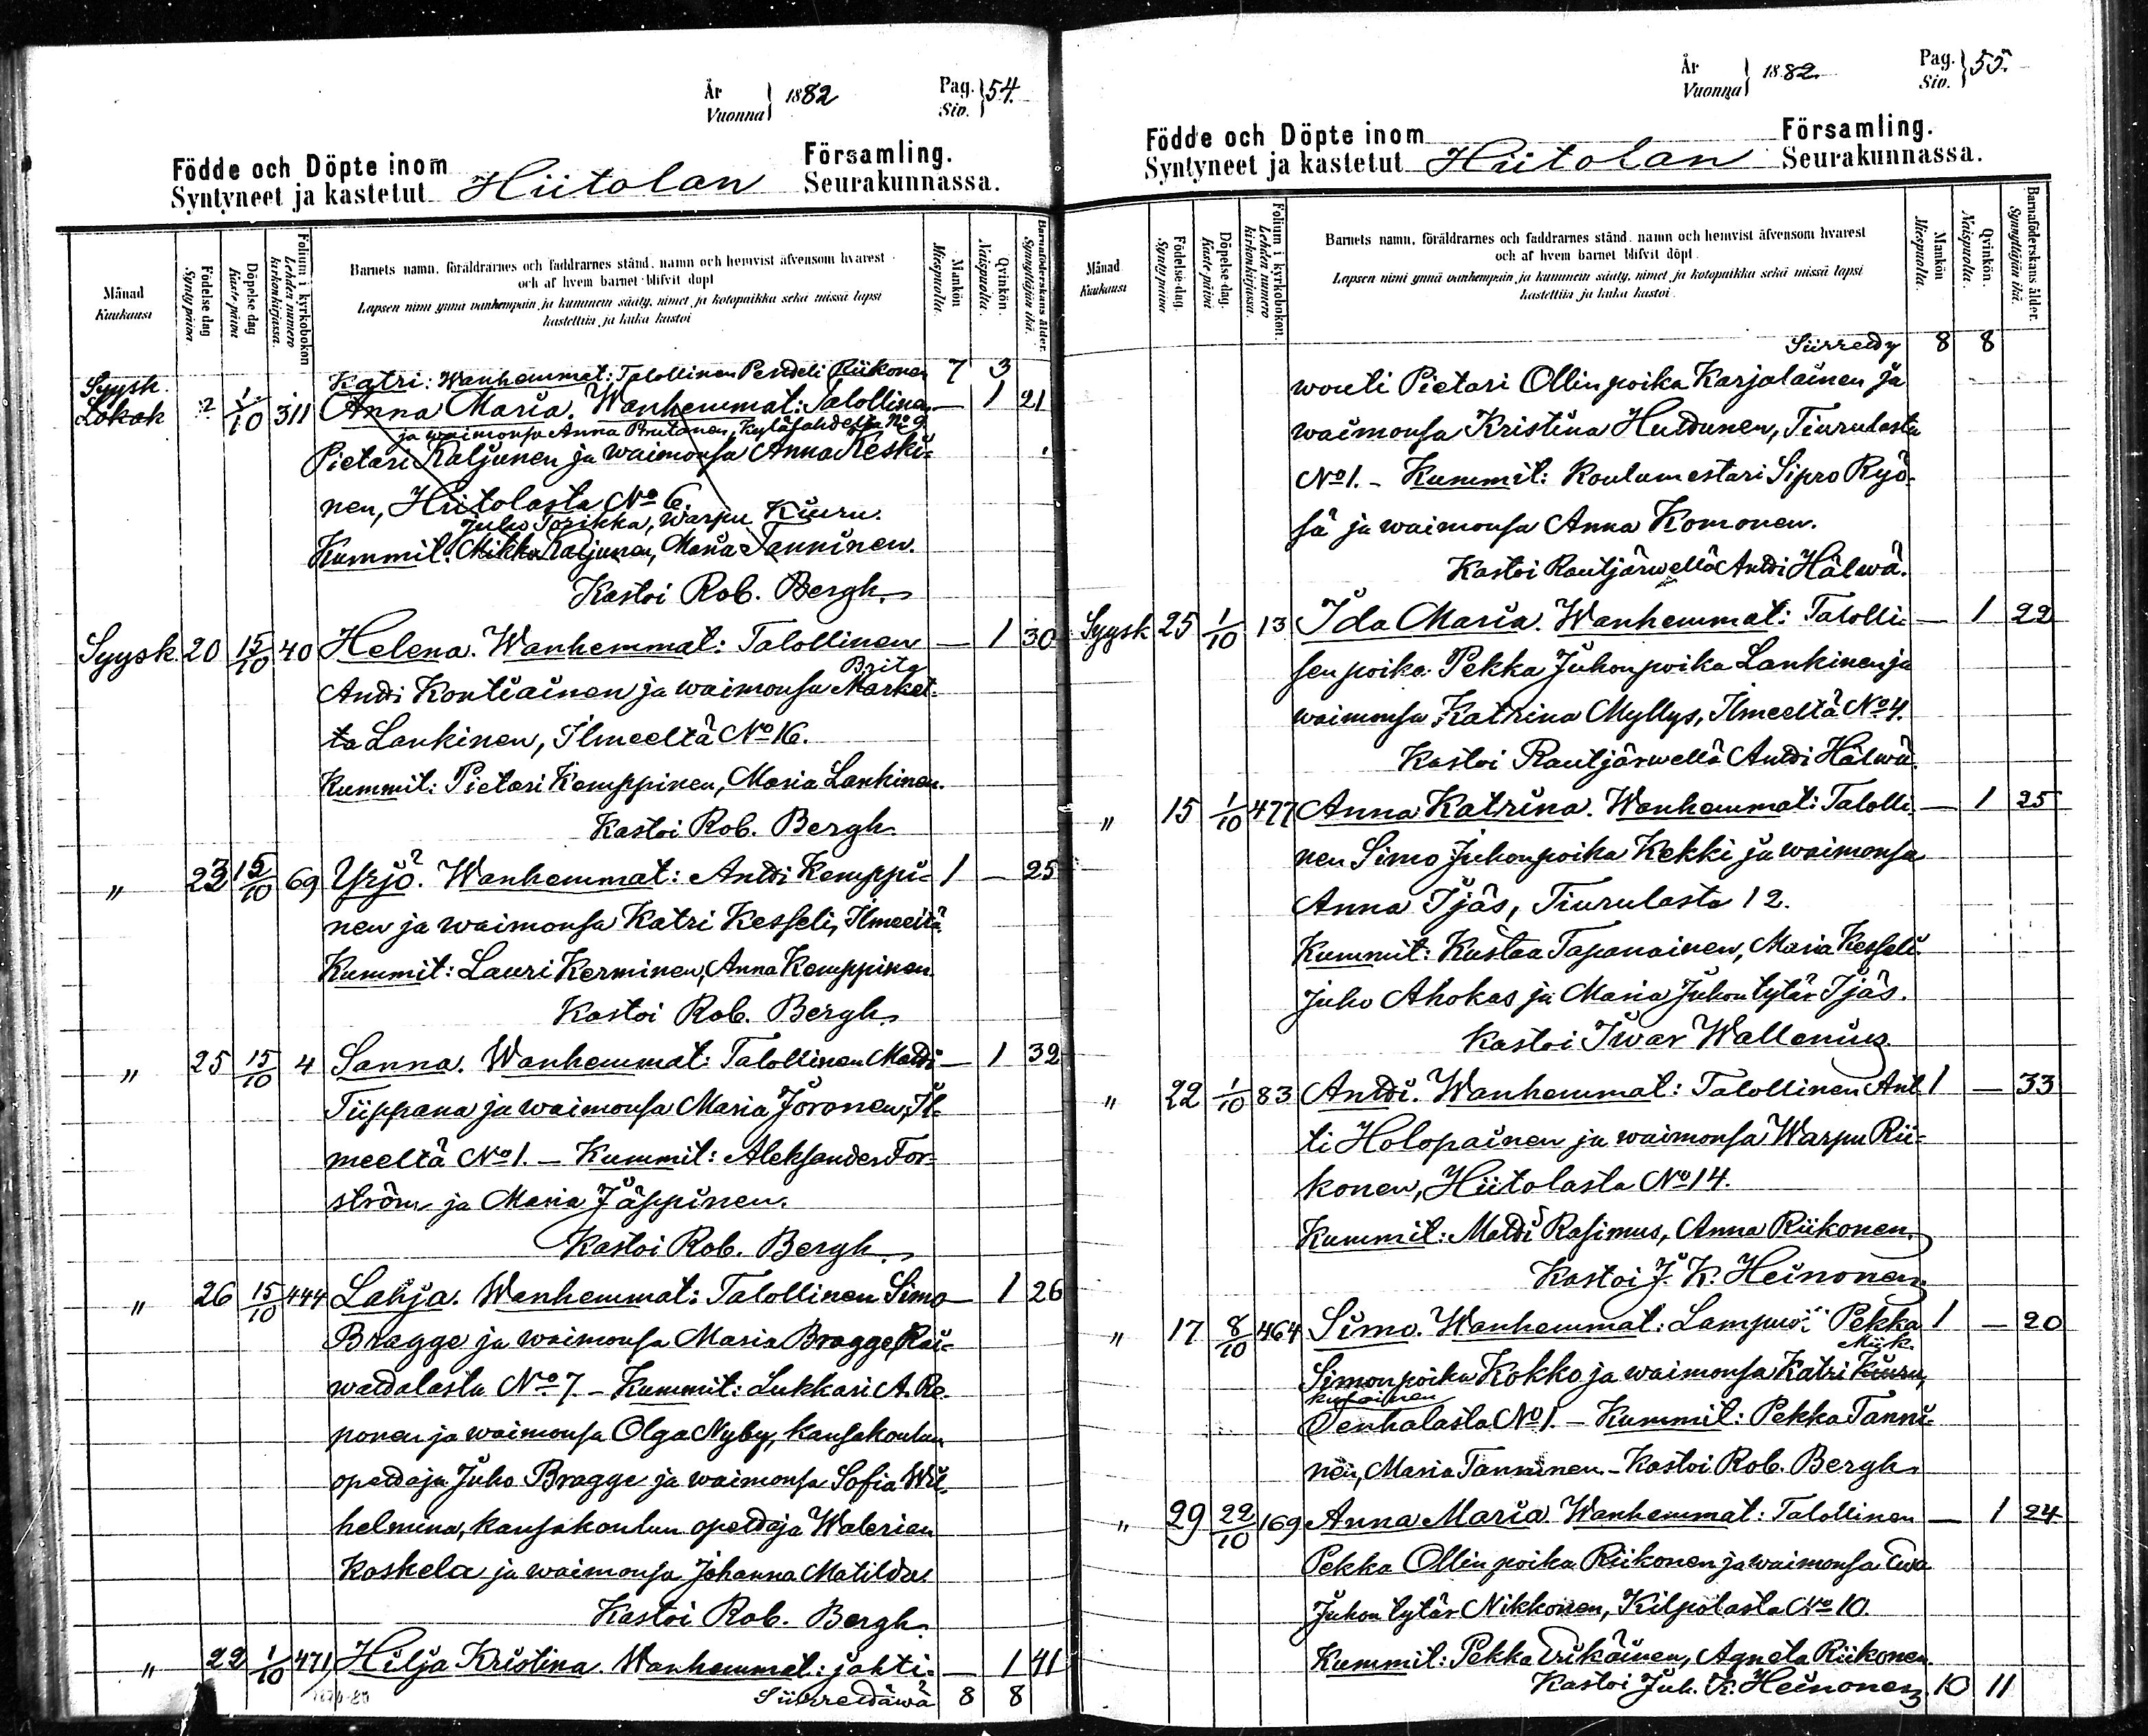 År
Vuonna } 1882
Pag.
Siv. } 54.
Födde och Döpte inom Församling.
Syntyneet ja kastetut Hiitolan Seurakunnassa.
Månad
Kuukausi
Födelse dag
Syntypäivä
Döpelse dag
Kaste päivä
Folium i kyrkobokon
Lehden numero
kirkonkirjassa.
Barnets namn, föräldrarnes och faddrarnes stånd, namn och hemvist äfvensom hvarest
och af hvem barnet blifvit döpt
Lapsen nimi ynnä vanhempain ja kummein sääty, nimet ja kotopaikka sekä missä lapsi
kastettiin ja kuka kastoi
Mankön
Miespuolta.
Qvinkön.
Naispuolta.
Barnaföderskans ålder.
Synnyttäjän ikä.
Katri: Wanhemmat: Talollinen Pendeli Riikonen 7 3
Syysk
Lokak 2 1/10 311 Anna Maria. Wanhemmat: Talollinen — 1 21
ja waimonsa Anna Prutanen, Kylälahdesta No 9
Pietari Kaljunen ja waimonsa Anna Keski-
nen, Hiitolasta No 6.
Juho Torikka, Warpu Kuuru.
Kummit: Mikko Kaljunen, Maria Tanninen.
Kastoi Rob. Bergh.
Syysk. 20 15/10 40 Helena. Wanhemmat: Talollinen — 1 30
Brita
Andi Kontiainen ja waimonsa Market-
ta Lankinen, Ilmeeltä No 16.
Kummit: Pietari Kemppinen, Maria Lankinen.
Kastoi Rob. Bergh.
„ 23 15/10 69 Yrjö? Wanhemmat: Antti Kemppi- 1 — 25
nen ja waimonsa Katri Kesseli, Ilmeeltä
Kummit: Lauri Kerminen, Anna Kemppinen.
Kastoi Rob. Bergh.
„ 25 15/10 4 Sanna. Wanhemmat: Talollinen Matti — 1 32
Tiippana ja waimonsa Maria Joronen, Il-
meeltä No 1. — Kummit: Aleksander For-
ström ja Maria Jäppinen.
Kastoi Rob. Bergh.
„ 26 15/10 444 Lahja. Wanhemmat: Talollinen Simo — 1 26
Bragge ja waimonsa Maria Bragge, Rai-
wattalasta No 7. — Kummit: Lukkari A. Re-
ponen ja waimonsa Olga Nyby, kansakoulun
opettaja Juho Bragge ja waimonsa Sofia Wil-
helmina, kansakoulun opettaja Walerian
Koskela ja waimonsa Johanna Matilda.
Kastoi Rob. Bergh.
„ 22 1/10 471 Hilja Kristina. Wanhemmat: jahti- — 1 41
Siirrettäwä 8 8
År
Vuonna } 1882.
Pag.
Siv. } 55.
Födde och Döpte inom Församling.
Syntyneet ja kastetut Hiitolan Seurakunnassa.
Månad
Kuukausi
Födelse-dag.
Syntypäivä
Döpelse-dag.
Kaste-päivä
Folium i kyrkobokon.
Lehden numero
kirkonkirjassa.
Barnets namn, föräldrarnes och faddrarnes stånd, namn och hemvist äfvensom hvarest
och af hvem barnet blifvit döpt.
Lapsen nimi ynnä vanhempain ja kummein sääty, nimet ja kotopaikka sekä missä lapsi
kastettiin ja kuka kastoi.
Mankön
Miespuolta.
Qvinkön.
Naispuolta.
Barnaföderskans ålder.
Synnyttäjän ikä.
Siirretty 8 8
wouti Pietari Ollinpoika Karjalainen ja
waimonsa Kristina Huttunen, Tiurulasta
No 1. — Kummit: Koulumestari Sipro Ryö-
sä ja waimonsa Anna Komonen.
Kastoi Rautjärwellä Antti Hälwä.
Syysk 25 1/10 13 Ida Maria. Wanhemmat: Talolli- — 1 22
sen poika Pekka Juhonpoika Lankinen ja
waimonsa Katrina Myllys, Ilmeeltä No 4.
Kastoi Rautjärwellä Antti Hälwä.
„ 15 1/10 477 Anna Katrina. Wanhemmat: Talolli- — 1 25
nen Simo Juhonpoika Kekki ja waimonsa
Anna Ijäs, Tiurulasta 12.
Kummit: Kustaa Tapanainen, Maria Kesseli.
Juho Ahokas ja Maria Juhontytär Ijäs.
Kastoi Iwar Wallenius.
„ 22 1/10 83 Antti. Wanhemmat: Talollinen Ant- 1 — 33
ti Holopainen ja waimonsa Warpu Rii-
konen, Hiitolasta No 14.
Kummit: Matti Rasimus, Anna Riikonen.
Kastoi J. K. Heinonen.
„ 17 8/10 464 Simo. Wanhemmat: Lampuoti Pekka 1 — 20
Miik.
Simonpoika Kokko ja waimonsa Katri Kuuru,
kulainen
Wenhalasta No 1. — Kummit: Pekka Tanni-
nen, Maria Tanninen. — Kastoi Rob. Bergh.
„ 29 22/10 169 Anna Maria Wanhemmat: Talollinen — 1 24
Pekka Ollinpoika Riikonen ja waimonsa Ewa
Juhontytär Nikkonen, Kilpolasta No 10.
Kummit: Pekka Erikäinen, Agneta Riikonen.
Kastoi Juh. K. Heinonen. 10 11